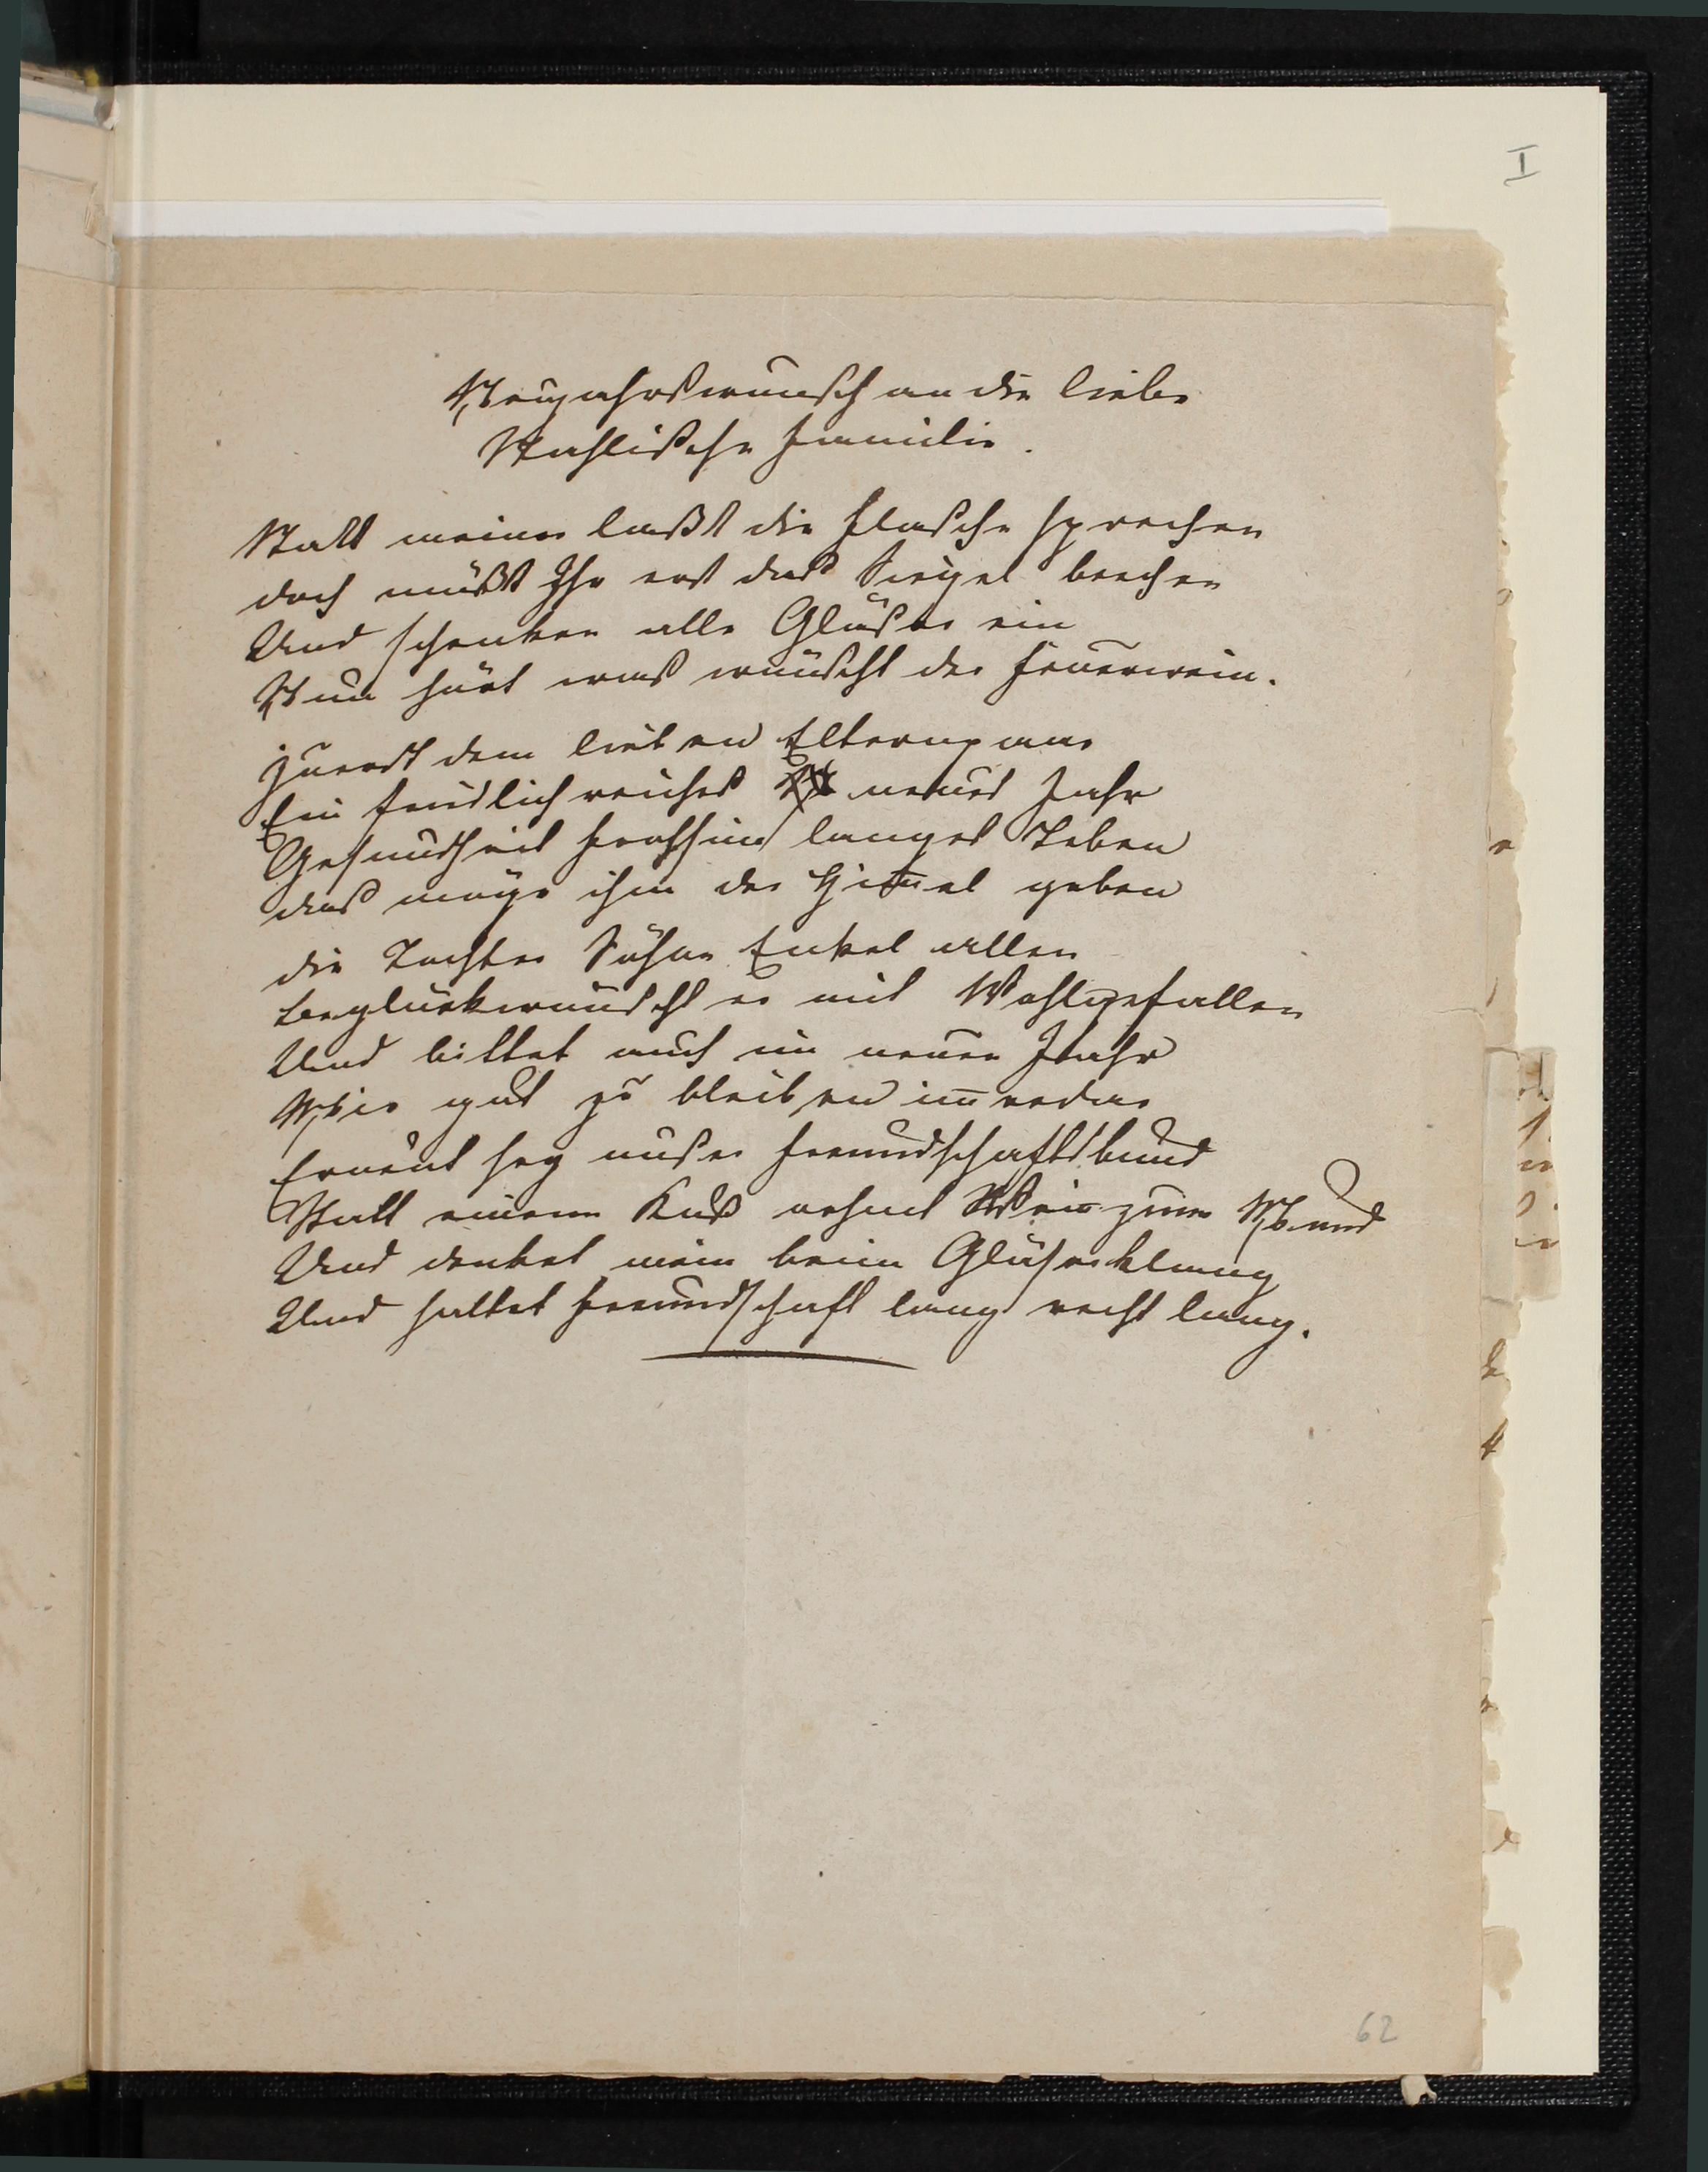 I
Neujahrswunsch an die liebe
Stahlische Familie.
Statt meiner laßt die Flasche sprechen
doch müßt Ihr erst das Siegel brechen
Und schenken alle Gläser ein
Nun hört was wünscht der Feuerwein.
Zuerst dem lieben Elternpaar
Ein freudlich reiches neues Jahr
Gesundheit Frohsinn langes Leben
das möge ihm der Him̅el geben
die Tochter Söhne Enkel allen
beglückwünscht er mit Wohlgefallen
Und bittet auch im neuen Jahr
Mir gut zu bleiben im̅erdar
Erneut sey unser Freundschaftsbund
Statt einem Kuß nehmt Wein zum Mund
Und denket mein beim Gläserklang
Und haltet Freundschaft lang recht lang.
62